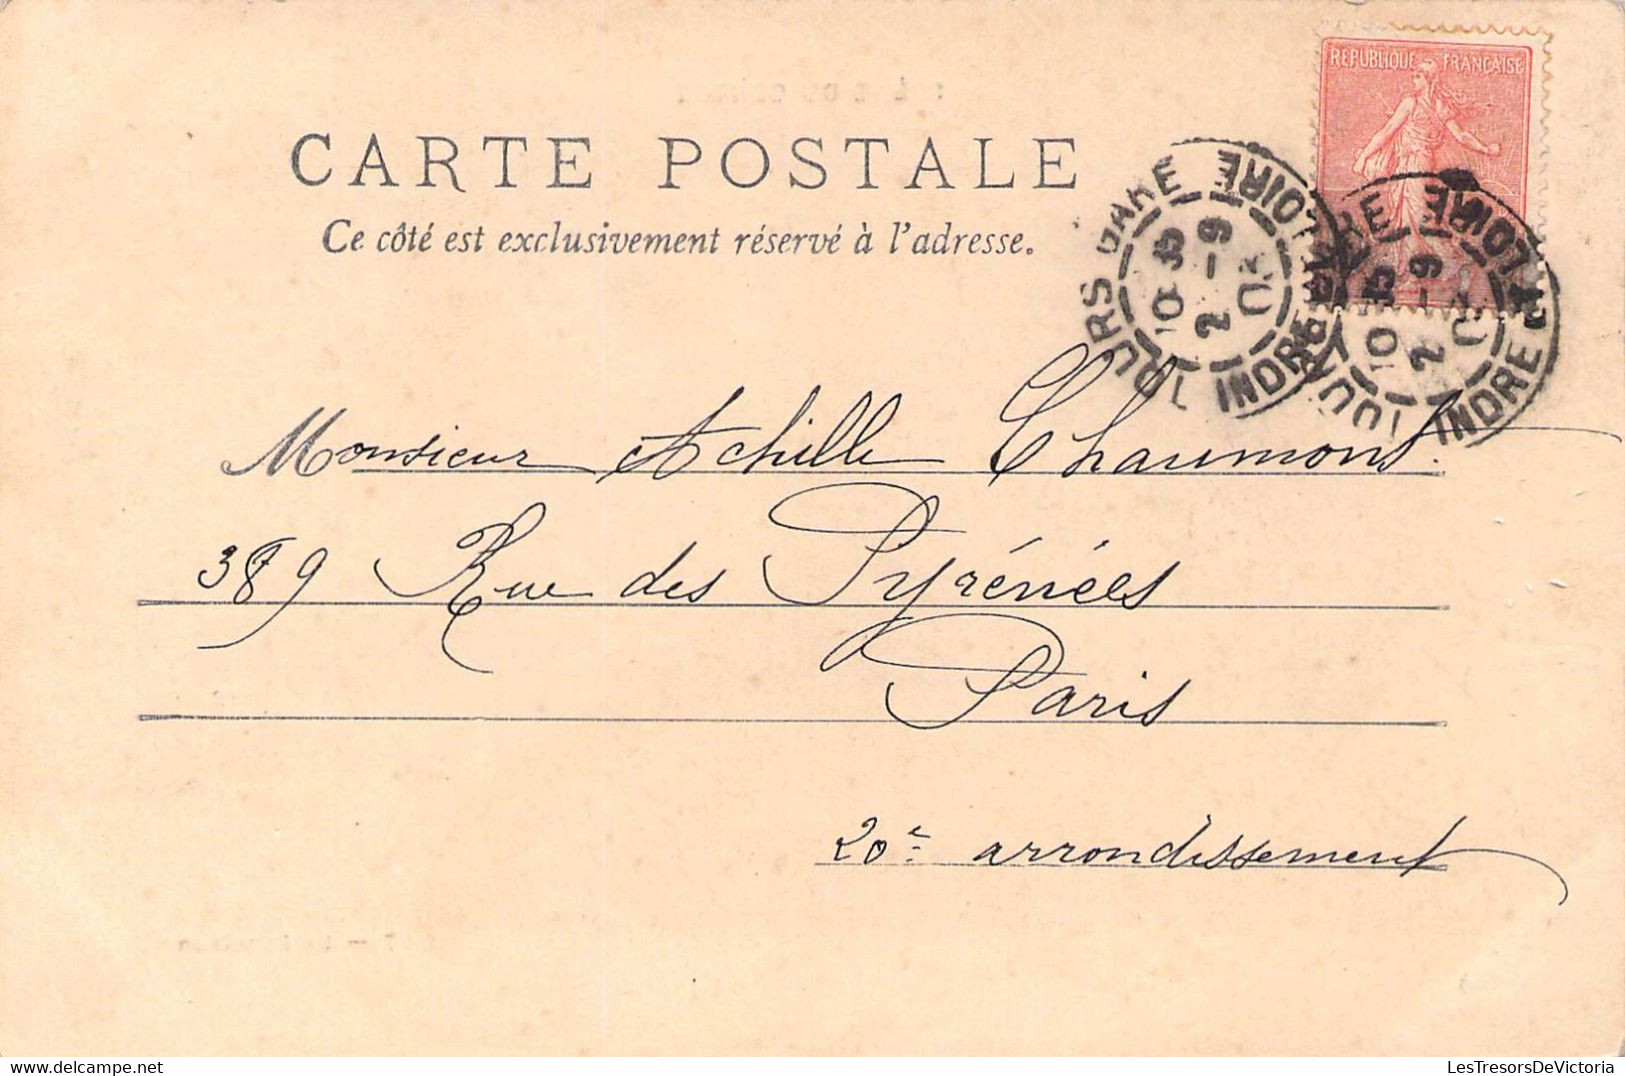 REPUBLIQUE FRANÇAISE
CARTE POSTALE
Ce côté est exclusivement réservé à l'adresse.
TOURS GARE
10 35
2 - 9
03
INDRE ET LOIRE
TOURS GARE
10 35
2 - 9
INDRE ET LOIRE
Monsieur Achille Chaumont.
389 Rue des Pyrénées
Paris
20e arrondissement
LesTresorsDeVictoria